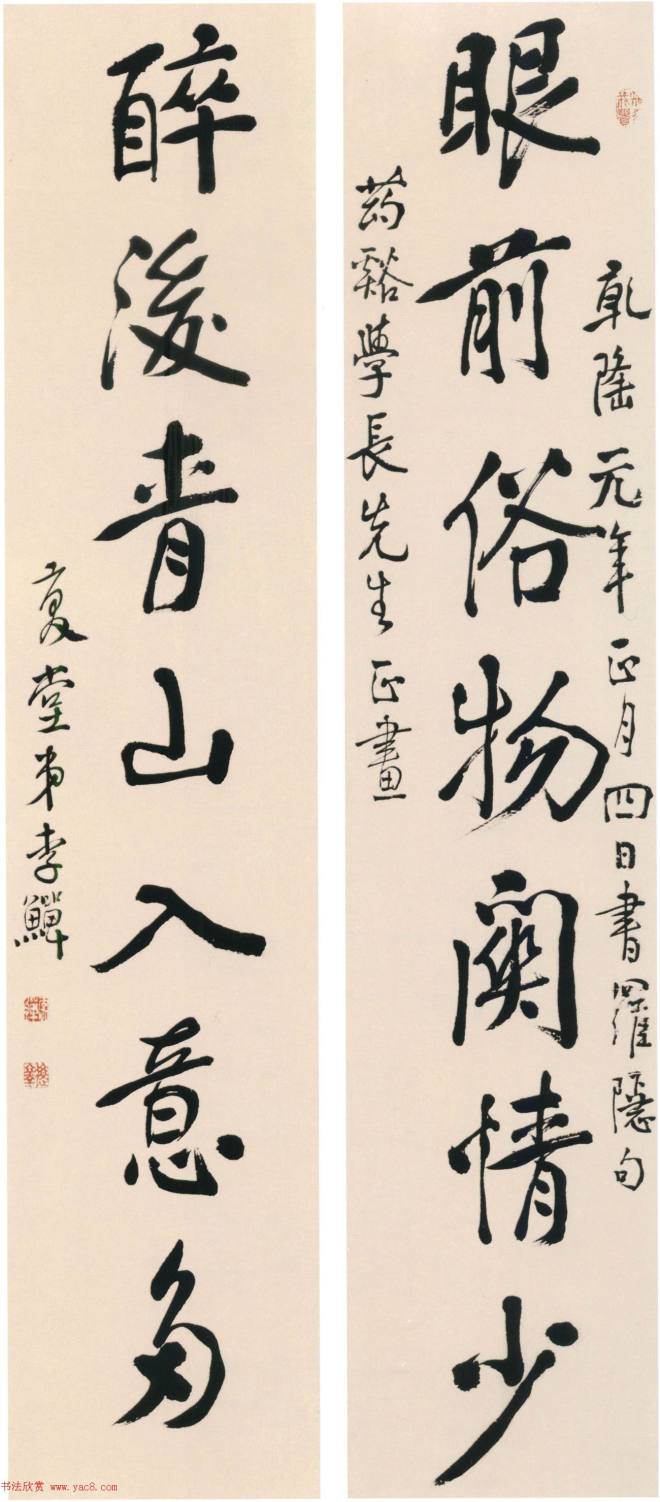 乾隆元年正月四日書羅隱句
眼前俗物關情少
药谿學長先生正畫
醉後青山入意多
復堂弟李鱓
书法欣赏 www.yac8.com